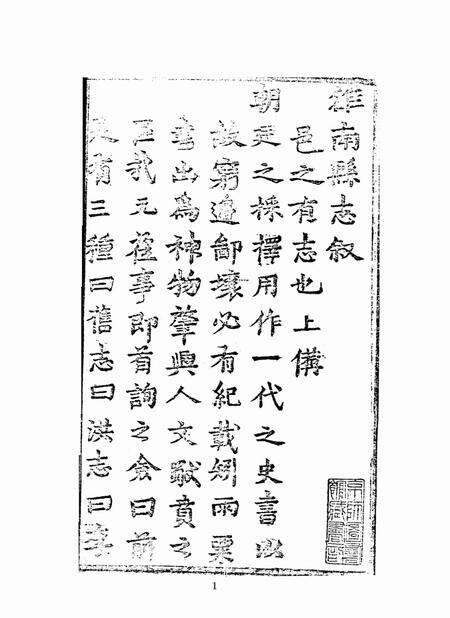 雒南縣志叙
邑之有志也上備
朝廷之採擇用作一代之史書以
故窮邊鄙壤必有紀載矧雨粟
書出爲神物肇興人文猷賁之
區哉元蒞事即首詢之僉曰前
有三種曰舊志曰洪志曰李
1